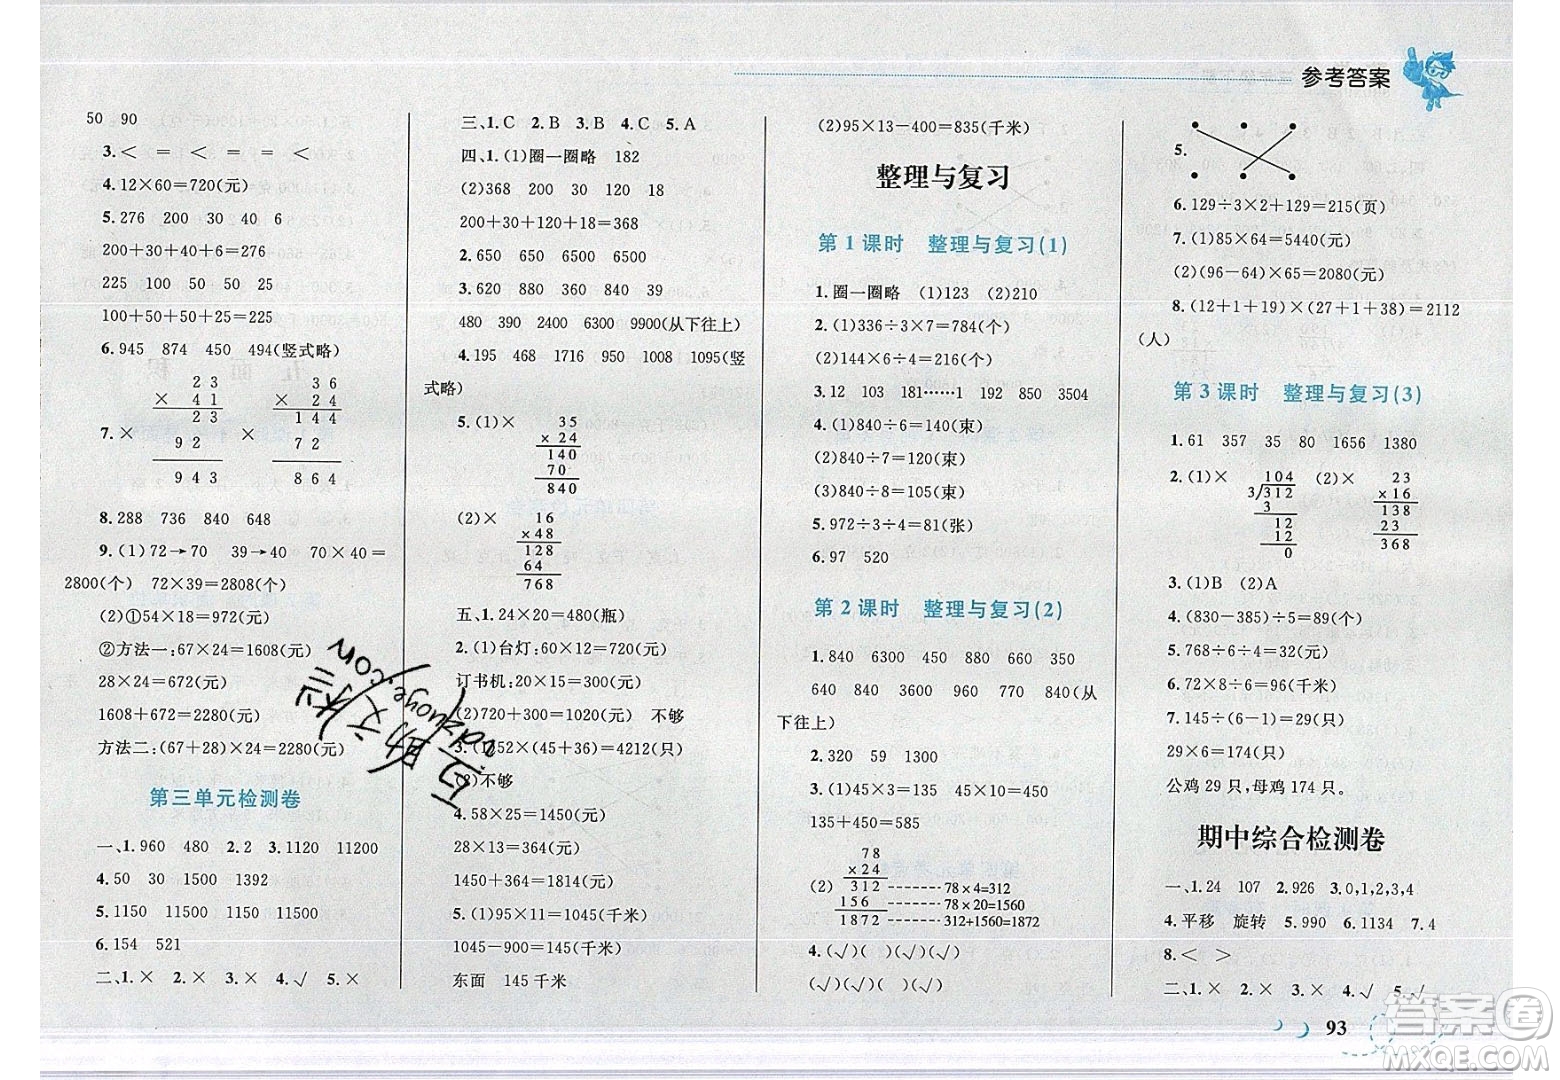 参考答案
50 90
3.< = < = = <
4.12×60=720(元)
5.276 200 30 40 6
200+30+40+6=276
225 100 50 50 25
100+50+50+25=225
6.945 874 450 494(竖式略)
7.×
2 3
× 4 1
2 3
9 2
9 4 3
×
3 6
× 2 4
1 4 4
7 2
8 6 4
8.288 736 840 648
9.(1)72→70 39→40 70×40=
2800(个) 72×39=2808(个)
(2)①54×18=972(元)
②方法一:67×24=1608(元)
28×24=672(元)
1608+672=2280(元)
方法二:(67+28)×24=2280(元)
第三单元检测卷
一、1.960 480 2.2 3.1120 11200
4.50 30 1500 1392
5.1150 11500 1150
6.154 521
二、1.× 2.× 3.× 4.√ 5.×
三、1.C 2.B 3.B 4.C 5.A
四、1.(1)圈一圈略 182
(2)368 200 30 120 18
200+30+120+18=368
2.650 650 6500 6500
3.620 880 360 840 39
480 390 2400 6300 9900(从下往上)
4.195 468 1716 950 1008 1095(竖
式略)
5.(1)×
35
×24
140
70
840
(2)×
16
×48
128
64
768
五、1.24×20=480(瓶)
2.(1)台灯:60×12=720(元)
订书机:20×15=300(元)
(2)720+300=1020(元) 不够
3.(1)52×(45+36)=4212(只)
(2)不够
4.58×25=1450(元)
28×13=364(元)
1450+364=1814(元)
5.(1)95×11=1045(千米)
1045-900=145(千米)
东面 145千米
(2)95×13-400=835(千米)
整理与复习
第1课时 整理与复习(1)
1.圈一圈略 (1)123 (2)210
2.(1)336÷3×7=784(个)
(2)144×6÷4=216(个)
3.12 103 181……1 192 850 3504
4.(1)840÷6=140(束)
(2)840÷7=120(束)
(3)840÷8=105(束)
5.972÷2÷6=81(张)
6.97 520
第2课时 整理与复习(2)
1.840 6300 450 880 660 350
640 840 3600 960 770 840(从
下往上)
2.320 59 1300
3.(1)45×3=135 45×10=450
135+450=585
(2)
78
×24
312-------78×4=312
156-------78×20=1560
1872-------312+1560=1872
4.(√)( )(√)( )(√)
(√)(√)( )(√)( )
5.
6.129÷3×2+129=215(页)
7.(1)85×64=5440(页)
(2)(96-64)×65=2080(页)
8.(12+1+19)×(27+1+38)=2112
(人)
第3课时 整理与复习(3)
1.61 357 35 80 1656 1380
2.(1)×
104
3/312
3
12
12
0
(2)×
23
×16
138
23
368
3.(1)B (2)A
4.(830-385)÷5=89(个)
5.768÷6÷4=32(元)
6.72×8÷6=96(千米)
7.145÷(6-1)=29(只)
29×6=174(只)
公鸡29只,母鸡174只。
期中综合检测卷
一、1.24 107 2.926 3.0,1,2,3,4
4.平移 旋转 5.990 6.1134 7.4
8.< >
二、1.× 2.× 3.× 4.√ 5.√
93
答案圈
MXQE.COM